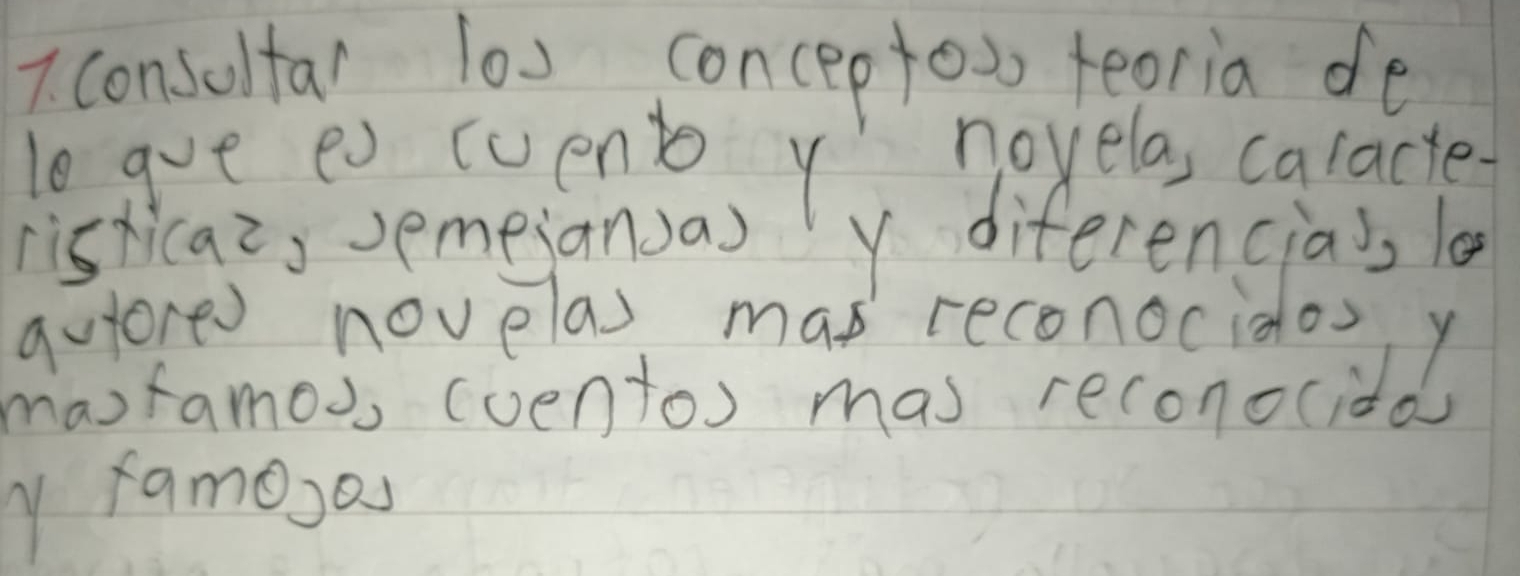 1. Consultar los conceptos, teoria de
lo que es cuento y novela, caracte-
risticaz, semejansas y diferencias, los
autores novelas mas reconocidos y
mas famos, cuentos mas reconocidos
y famosos